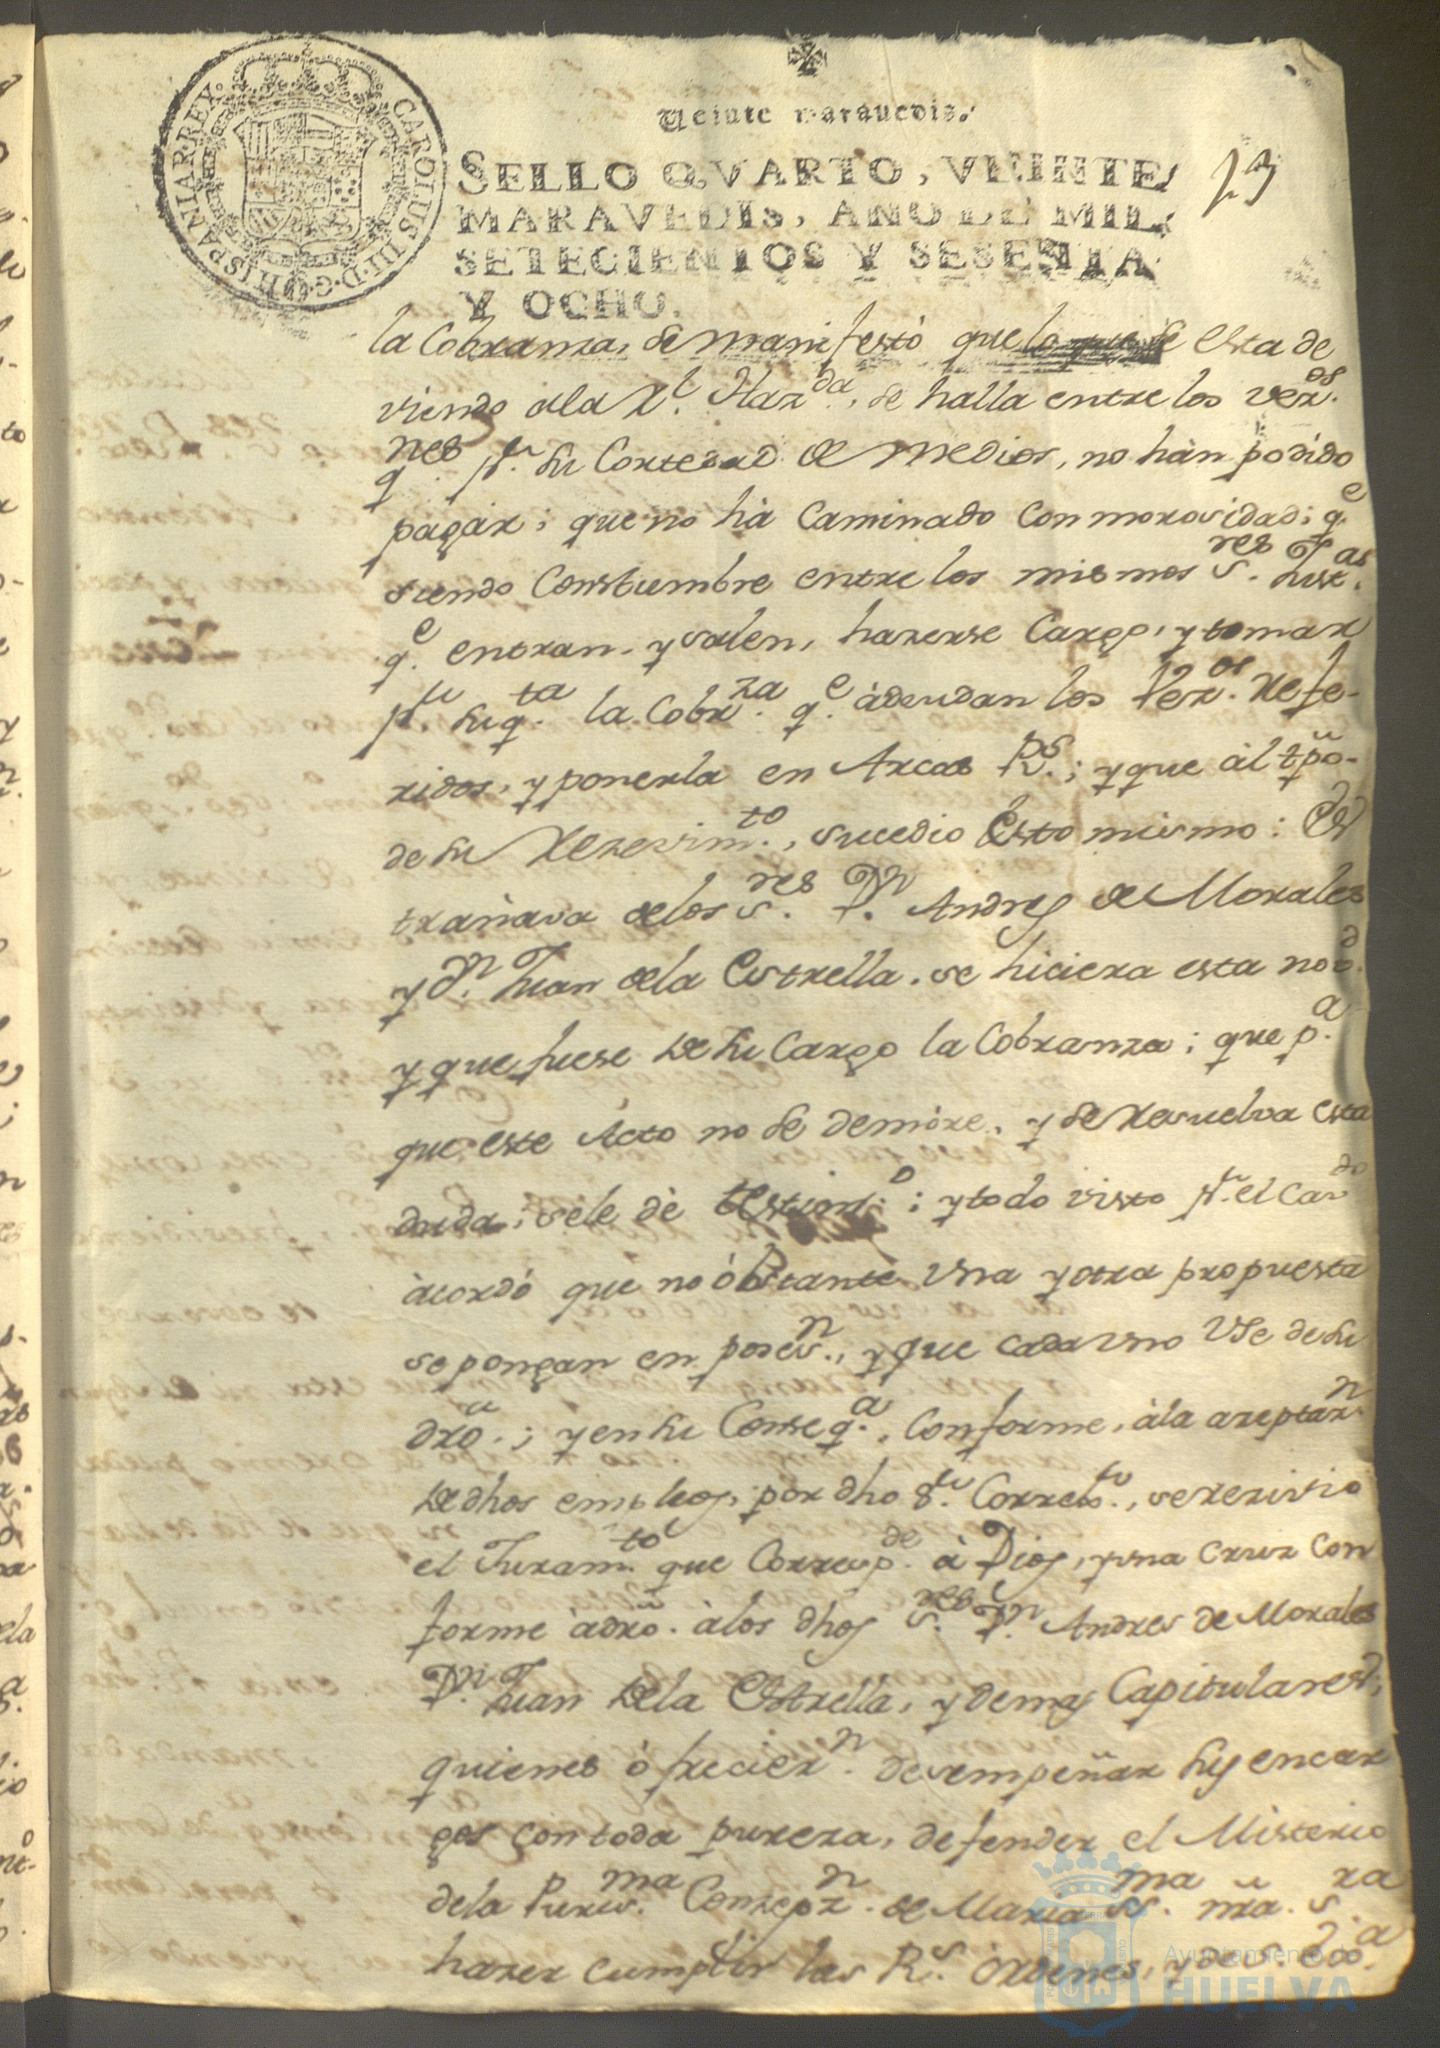 CAROLUS III D G HISPANIAR REX
Veinte maravedis.
SELLO QVARTO, VEINTE
MARAVEDIS, AÑO DE MIL
SETECIENTOS Y SESENTA
Y OCHO.
la Cobranza, se manifestó que lo que se esta de
viendo ala Rl. Hazda., se halla entre los vezos.
q. pr. su Cortedad de medios, no hàn podido
pagàr; que no hà Caminado con morosidad; qe
siendo Constumbre entre los mismos sres. Justas.
qe. entran, y salen, hazerse Cargo, y tomar
pr. su qta. la Cobrza. qe. àdeudan los Vezos. Refe-
ridos, y ponerla en Arcas Rs.; y que àl tpõ-
de su Rezevimto., sucedio esto mismo: Es
trañava delos sres. Dn. Andres de Morales
y Dn. Juan dela Estrella, se hiciera esta nobd.
y que fuese de su Cargo la Cobranza; que pa.
que este Acto no se demòre, y se Resuelva esta
duda; sele dè testimo.; y todo visto pr. el Cavdo
àcordó que no óbstante una y otra propuesta
se pongan en posesn., y que cada uno Use de su
drõ.; y en su Conseqa., Conforme, àla azeptazn
de dhos empleos, por dho sr. Correxr., se rezivio
el Juramto. que Correspde. à Dios, y una Cruz con
forme àdrõ. àlos dhos sres. Dn. Andres de Morales
Dn. Juan dela Estrella, y demas Capitulares;
quienes ófreciern. desempeñar sus encar
gos con toda pureza, defender el Misterio
dela Purisma. Conzepzn. de Maria ssma. nrã. sra
hazer cumplir las Rs. òrdenes, y de S. Exa.
Ayuntamiento de
HUELVA